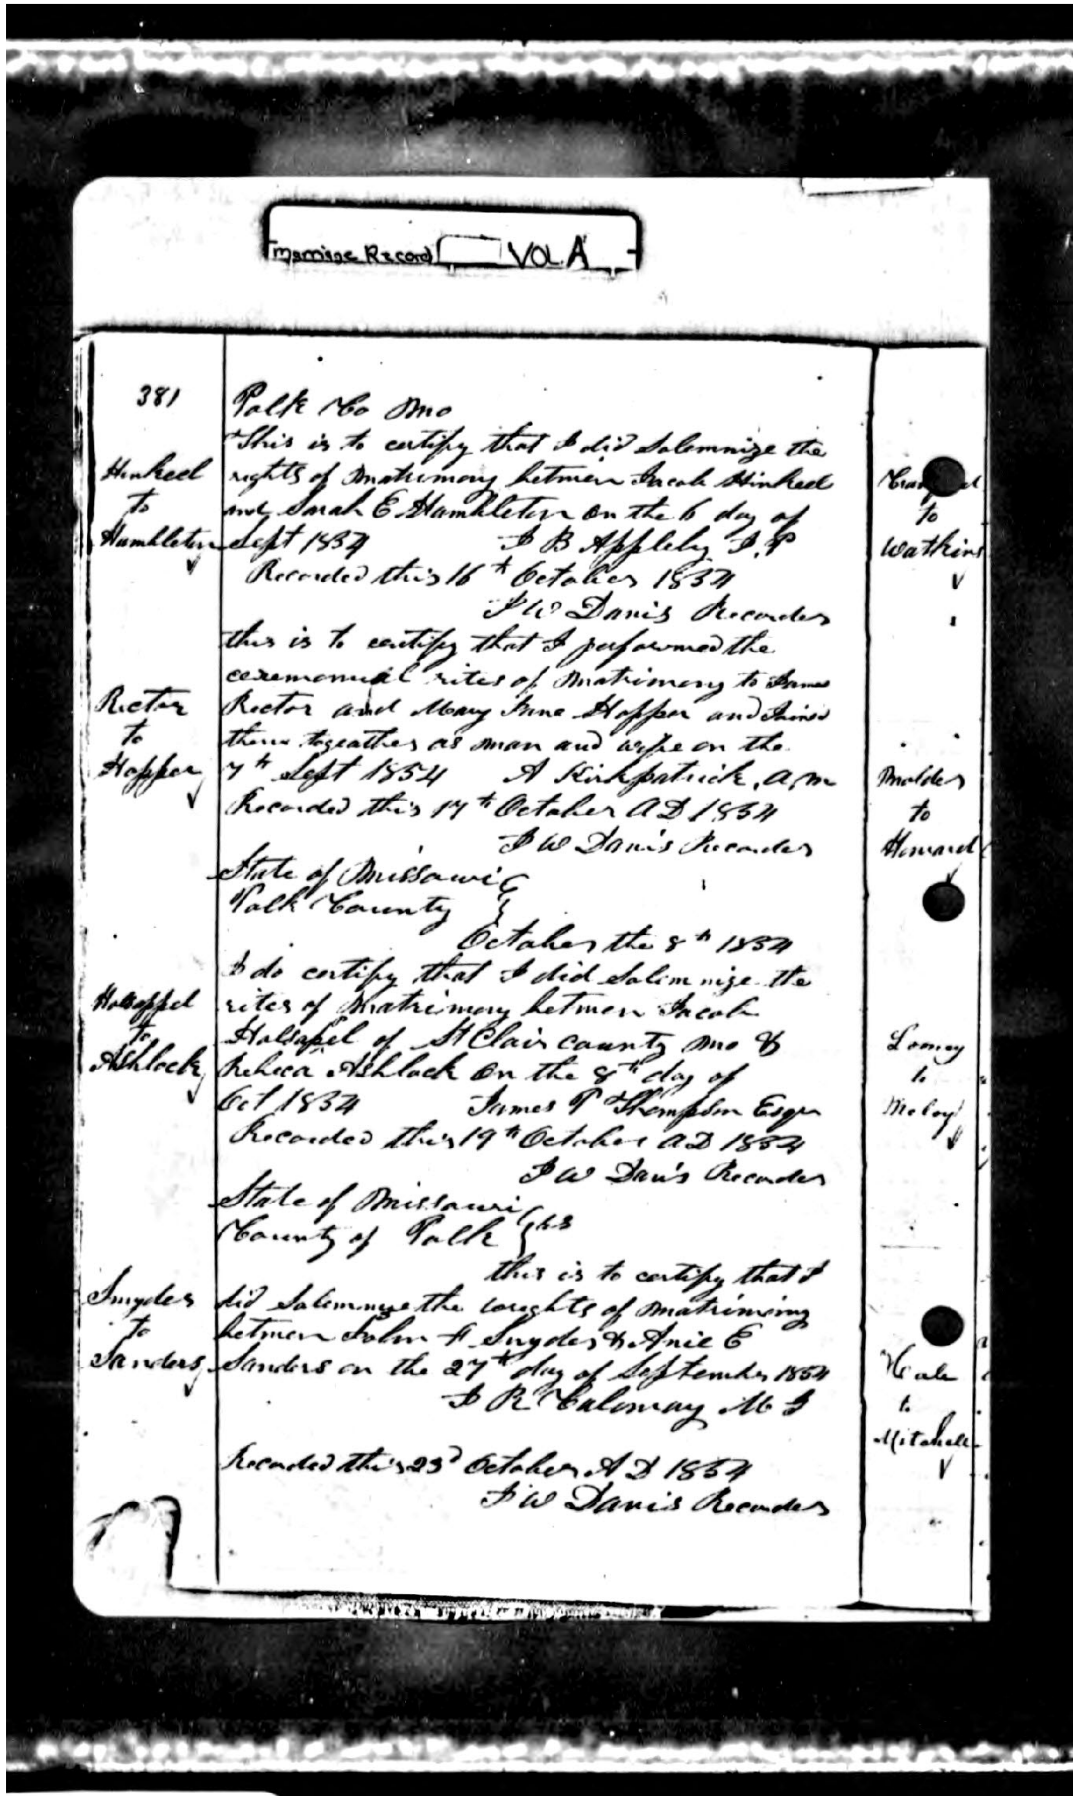 Marriage Record VOL. A
381
Polk Co Mo
This is to certify that I did Solemnize the
Hinked
to
Hambleton
rights of Matrimony between Jacob Hinked
and Sarah E Hambleton on the 6 day of
Sept 1854 J B Appleby J. P
Recorded this 16th October 1854
J W Davis Recorder
this is to certify that I performed the
ceremonial rites of Matrimony to James
Rector
to
Hopper
Rector and Mary Jane Hopper and Joined
them togeather as man and wife on the
7th Sept 1854 A Kirkpatrick, a, m
Recorded this 17th October AD 1854
J W Davis Recorder
State of Missouri
Polk County
October the 8th 1854
I do certify that I did Solimnize the
Holsappel
to
Ashlock
rites of Matrimony between Jacob
Holsapel of St Clair county Mo &
Rebeca Ashlock on the 8th day of
Oct 1854 James P Thompson Esqr
Recorded this 19th October AD 1854
J W Davis Recorder
State of Missouri
County of Polk } ss
this is to certify that I
Snyder
to
Sanders
did Solemnize the wrights of Matrimony
between John H Snyder & Anie E
Sanders on the 27th day of September 1854
J R Calloway M G
Recorded this 23d October A D 1854
J W Davis Recorder
to
Watkins
Molder
to
Howard
Looney
to
McCoy
to
Mitchell